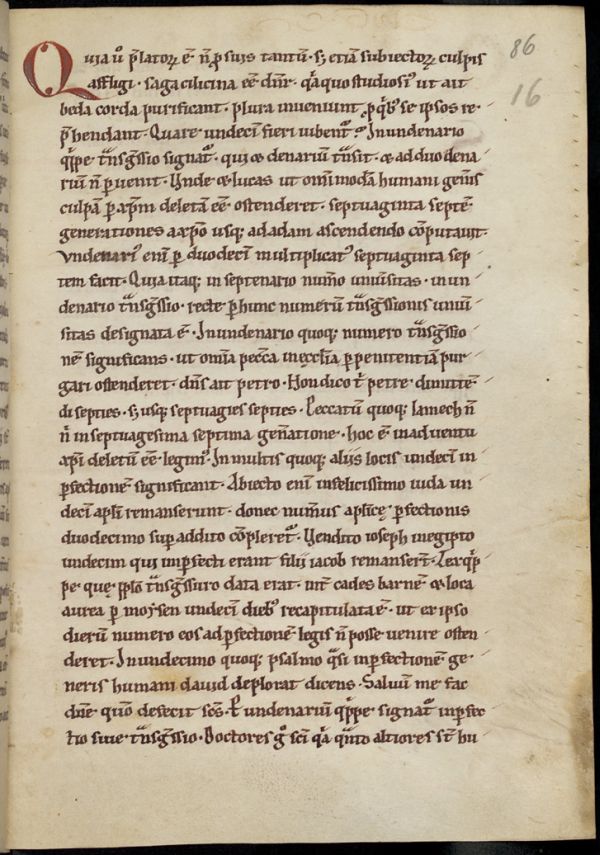 86
16
Quia ů p̄latorꝝ ē n̄ ꝓ suis tantū · sꝫ etiā subiectorꝝ culpis
affligi · saga cilicina eē dn̄r · q̄a quo studiosi᾽ ut ait
beda corda purificant · plura inueniunt ꝓ qͥbꝫ se ipsos re ·
p̄hendant · Quare undeci᷑ fieri iubent᷑? In undenario
qͥppe t̄nsg̃ssio signat᷑ · qui ⁊ denariū t̄nsit · ⁊ ad duodena
riū n̄ ꝑuenit · Unde ⁊ lucas ut om̄imodā humani gen̄is
culpā ꝑ xp̄m deletā eē ostenderet · septuaginta septē
generationes a xp̄o usqꝫ ad adam ascendendo cōputauit ·
Undenari᾽ eni᷑ ꝑ duodeci᷑ multiplicat᾽ septuaginta sep
tem facit · Quia itaqꝫ in septenario num̄o uniūsitas · in un
denario t̄nsg̃ssio · recte ꝑ hunc numerū t̄nsg̃ssionis uniū
sitas designata ē · In undenario quoqꝫ numero t̄nsg̃ssio
nē significans · ut om̄ia pecc̄a in ęcc̄lia ꝑ penitentiā pur
gari ostenderet · dn̄s ait petro · Non dico t᷑ petre dimittē
di septies · sꝫ usqꝫ septuagies septies · Peccatū quoqꝫ lamech n̄
n᷑ in septuagesima septima gen̄atione · hoc ē in aduentu
xp̄i deletū eē legim᾽ · In multis quoqꝫ aliis locis undeci᷑ in
ꝑfectionē significant · Abiecto eni᷑ infelicissimo iuda un
deci᷑ apl̄i remanserunt · donec num̄us apl̄icę ꝑfectionis
duodecimo suꝑaddito cōpleret᷑ · Uendito ioseph in egipto
undecim qui inꝑfecti erant filii iacob remanser̄t · Lex qͥp
pe quę ppl̄o t̄nsg̃ssuro data erat · int̄ cades barnē ⁊ loca
aurea ꝑ moysen undeci᷑ diebꝫ recapitulata ē · ut ex ipso
dierū numero eos ad ꝑfectionē legis n̄ posse uenire osten
deret · In undecimo quoqꝫ psalmo q̄si inꝑfectionē ge
neris humani dauid deplorat dicens · Saluū me fac
dn̄e quō defecit sc̄s · Per undenariū qͥppe signat᷑ inꝑfec
tio siue t̄nsg̃ssio · Doctores gͦ sc̄i q̄a qͣnto altiores st̄ hu